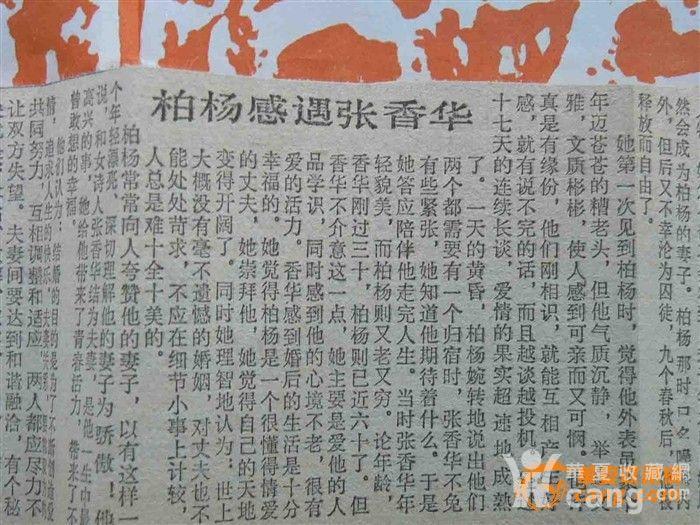 柏杨感遇张香华
然会成为柏杨的妻子。柏杨那时
外，但后又不幸沦为囚徒，九个春秋后
释放而自由了。
她第一次见到柏杨时，觉得他外表虽
年迈苍苍的糟老头，但他气质沉静，举
雅，文质彬彬，使人感到可亲而又可悯。
真是有缘份，他们刚相识，就能互相产生好
感，就有说不完的话，而且越谈越投机
十七天的连续长谈，爱情的果实超速地成熟
了。一天的黄昏，柏杨婉转地说出他们
两个都需要有一个归宿时，张香华不免
有些紧张，她知道他期待着什么。于是
她答应陪伴他走完人生。当时张香华年
轻貌美，而柏杨则又老又穷。论年龄，
香华刚过三十，柏杨则已近六十了。但
香华不介意这一点，她主要是爱他的人
品学识，同时感到他的心境不老，很有
爱的活力。香华感到婚后的生活是十分
幸福的。她觉得柏杨是一个很懂得情爱
的丈夫，她崇拜他，她觉得自己的天地
变得开阔了。同时她理智地认为：世上
大概没有毫不遗憾的婚姻，对丈夫也不
能处处苛求，不应在细节小事上计较，
人总是难十全十美的。
柏杨常常向人夸赞他的妻子，以有这样一
个年轻漂亮、深切理解他的妻子为骄傲！他
说，和女诗人张香华结为夫妻，是他一生中最
高兴的事，她给他带来了青春活力，带来了不
曾敢想的幸福。
他们认为：结婚的目的是为了不断创造爱
情，追求人生的快乐。夫妻
共同努力，互相调整和适应，两人都应尽力不
让双方失望。夫妻间要达到和谐融洽，有个秘
華夏收藏網
cang.com